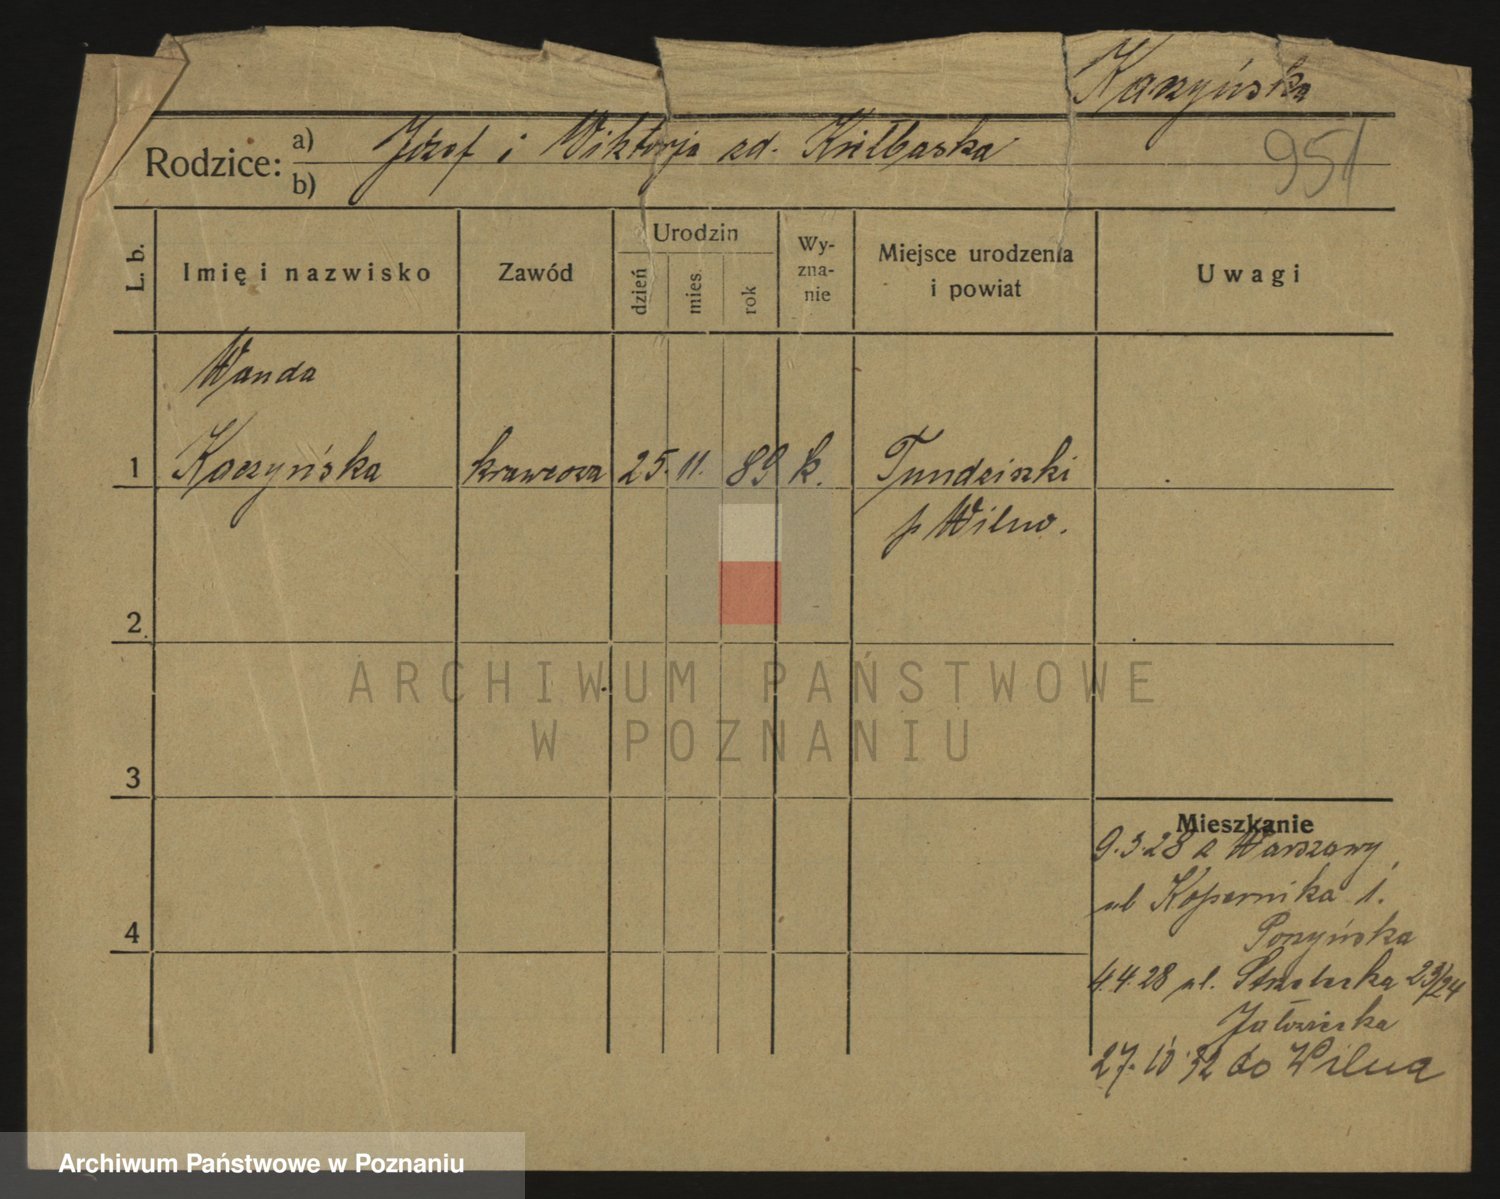 Kaczyńska
Rodzice: a) Józef i Wiktorja zd. Kiełbaska
b)
951
L. b. Imię i nazwisko Zawód Urodzin dzień mies. rok Wy-zna-nie Miejsce urodzenia i powiat Uwagi
Wanda
1 Kaczyńska krawcowa 25. 11. 89 k. Tundziszki
p Wilno.
2
ARCHIWUM PAŃSTWOWE
W POZNANIU
3
Mieszkanie
9.3.28 z Warszawy,
ul Kopernika 1.
4
4.4.28 ul. Strzelecka 23/24
27.10.32 do Wilna
Archiwum Państwowe w Poznaniu